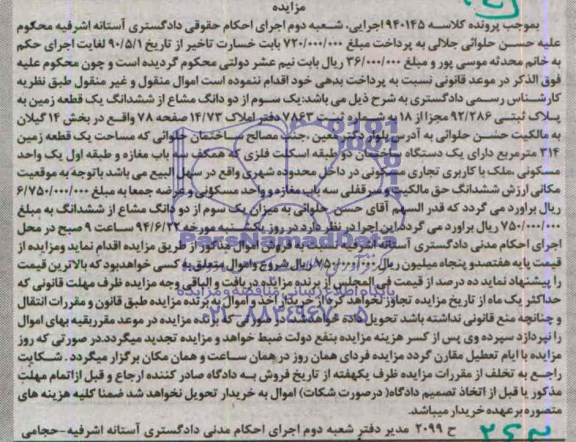 مزایده
بموجب پرونده کلاسه ۹۴۰۱۴۵ اجرایی، شعبه دوم اجرای احکام حقوقی دادگستری آستانه اشرفیه محکوم
علیه حسن حلوائی جلالی به پرداخت مبلغ ۷۲۰/۰۰۰/۰۰۰ بابت خسارت تاخیر از تاریخ ۹۰/۵/۱ لغایت اجرای حکم
به خانم محدثه موسی پور و مبلغ ۳۶/۰۰۰/۰۰۰ ریال بابت نیم عشر دولتی محکوم گردیده است و چون محکوم علیه
فوق الذکر در موعد قانونی نسبت به پرداخت بدهی خود اقدام ننموده است اموال منقول و غیر منقول طبق نظریه
کارشناس رسمی دادگستری به شرح ذیل می باشد:یک سوم از دو دانگ مشاع از ششدانگ یک قطعه زمین به
پلاک ثبتی ۹۲/۲۸۶ مجزا از ۱۸ به شماره ثبت ۷۸۶۳ دفتر املاک ۱۴/۷۳ صفحه ۷۸ واقع در بخش ۱۴ گیلان
به مالکیت حسن حلوانی به آدرس بلوار دکتر معین ،جنب مصالح ساختمان حلوائی که مساحت یک قطعه زمین
۳۱۴ مترمربع دارای یک دستگاه ساختمان دو طبقه اسکلت فلزی که همکف سه باب مغازه و طبقه اول یک واحد
مسکونی ،ملک با کاربری تجاری مسکونی در داخل محدوده شهری واقع در سهل البیع می باشد با توجه به موقعیت
مکانی ارزش ششدانگ حق مالکیت و سرقفلی سه باب مغازه و واحد مسکونی و عرصه جمعا به مبلغ ۶/۷۵۰/۰۰۰/۰۰۰
ریال برآورد می گردد که قدر السهم آقای حسن حلوائی به میزان یک سوم از دو دانگ مشاع از ششدانگ به مبلغ
۷۵۰/۰۰۰/۰۰۰ ریال برآورد می گردد این اجرا در نظر دارد در روز یکشنبه مورخه ۹۴/۶/۲۲ ساعت ۹ صبح در محل
اجرای احکام مدنی دادگستری آستانه اشرفیه اموال مذکور از طریق مزایده اقدام نماید ومزایده از
قیمت پایه هفتصدو پنجاه میلیون ریال ۷۵۰/۰۰۰/۰۰۰ ریال شروع واموال متعلق به کسی خواهدبود که بالاترین قیمت
را پیشنهاد نماید ده درصد از قیمت فی المجلس از برنده مزایده دریافت و الباقی وجه مزایده ظرف مهلت قانونی که
حداکثر یک ماه از تاریخ مزایده تجاوز نخواهد کرد از خریدار اخذ و اموال به برنده مزایده طبق قانون و مقررات انتقال
و چنانچه منع قانونی نداشته باشد تحویل داده خواهدشد در صورتی که برنده مزایده در موعد مقرربقیه بهای اموال
را نپردازد سپرده وی پس از کسر هزینه مزایده بنفع دولت ضبط خواهد و مزایده تجدید میگردد.در صورتی که روز
مزایده با ایام تعطیل مقارن گردد مزایده فردای همان روز در همان ساعت و همان مکان برگزار میگردد . شکایت
راجع به تخلف از مقررات مزایده ظرف یکهفته از تاریخ فروش به دادگاه صادر کننده ارجاع و قبل ازاتمام مهلت
مذکور یا قبل از اتخاذ تصمیم دادگاه( درصورت شکات) اموال به خریدار تحویل نخواهد شد ضمنا کلیه هزینه های
متصوره برعهده خریدار میباشد.
ح ۲۰۹۹ مدیر دفتر شعبه دوم اجرای احکام مدنی دادگستری آستانه اشرفیه-حجامی
ParsNamadData
۰۲۱-۸۸۳۴۹۶۷۰-۵